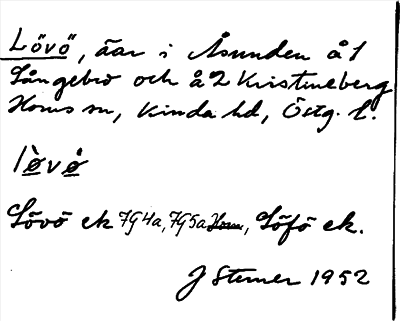 Lövö, äar i Åsunden å 1
Långebro och å 2 Kristineberg
Horns sn, Kinda hd, Östg. l.
lø̀vø̊
Lövö ek 794a, 795a Horn, Löfö ek.
J Sterner 1952